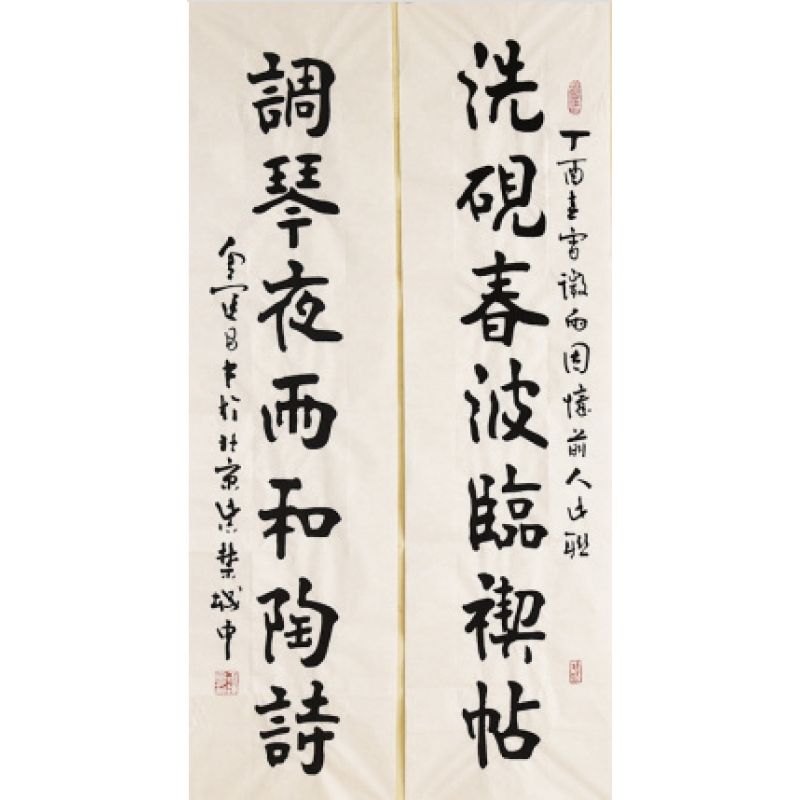 丁酉春微雨因憶前人聯
洗硯春波臨禊帖
調琴夜雨和陶詩
金運昌書於北京紫禁城中